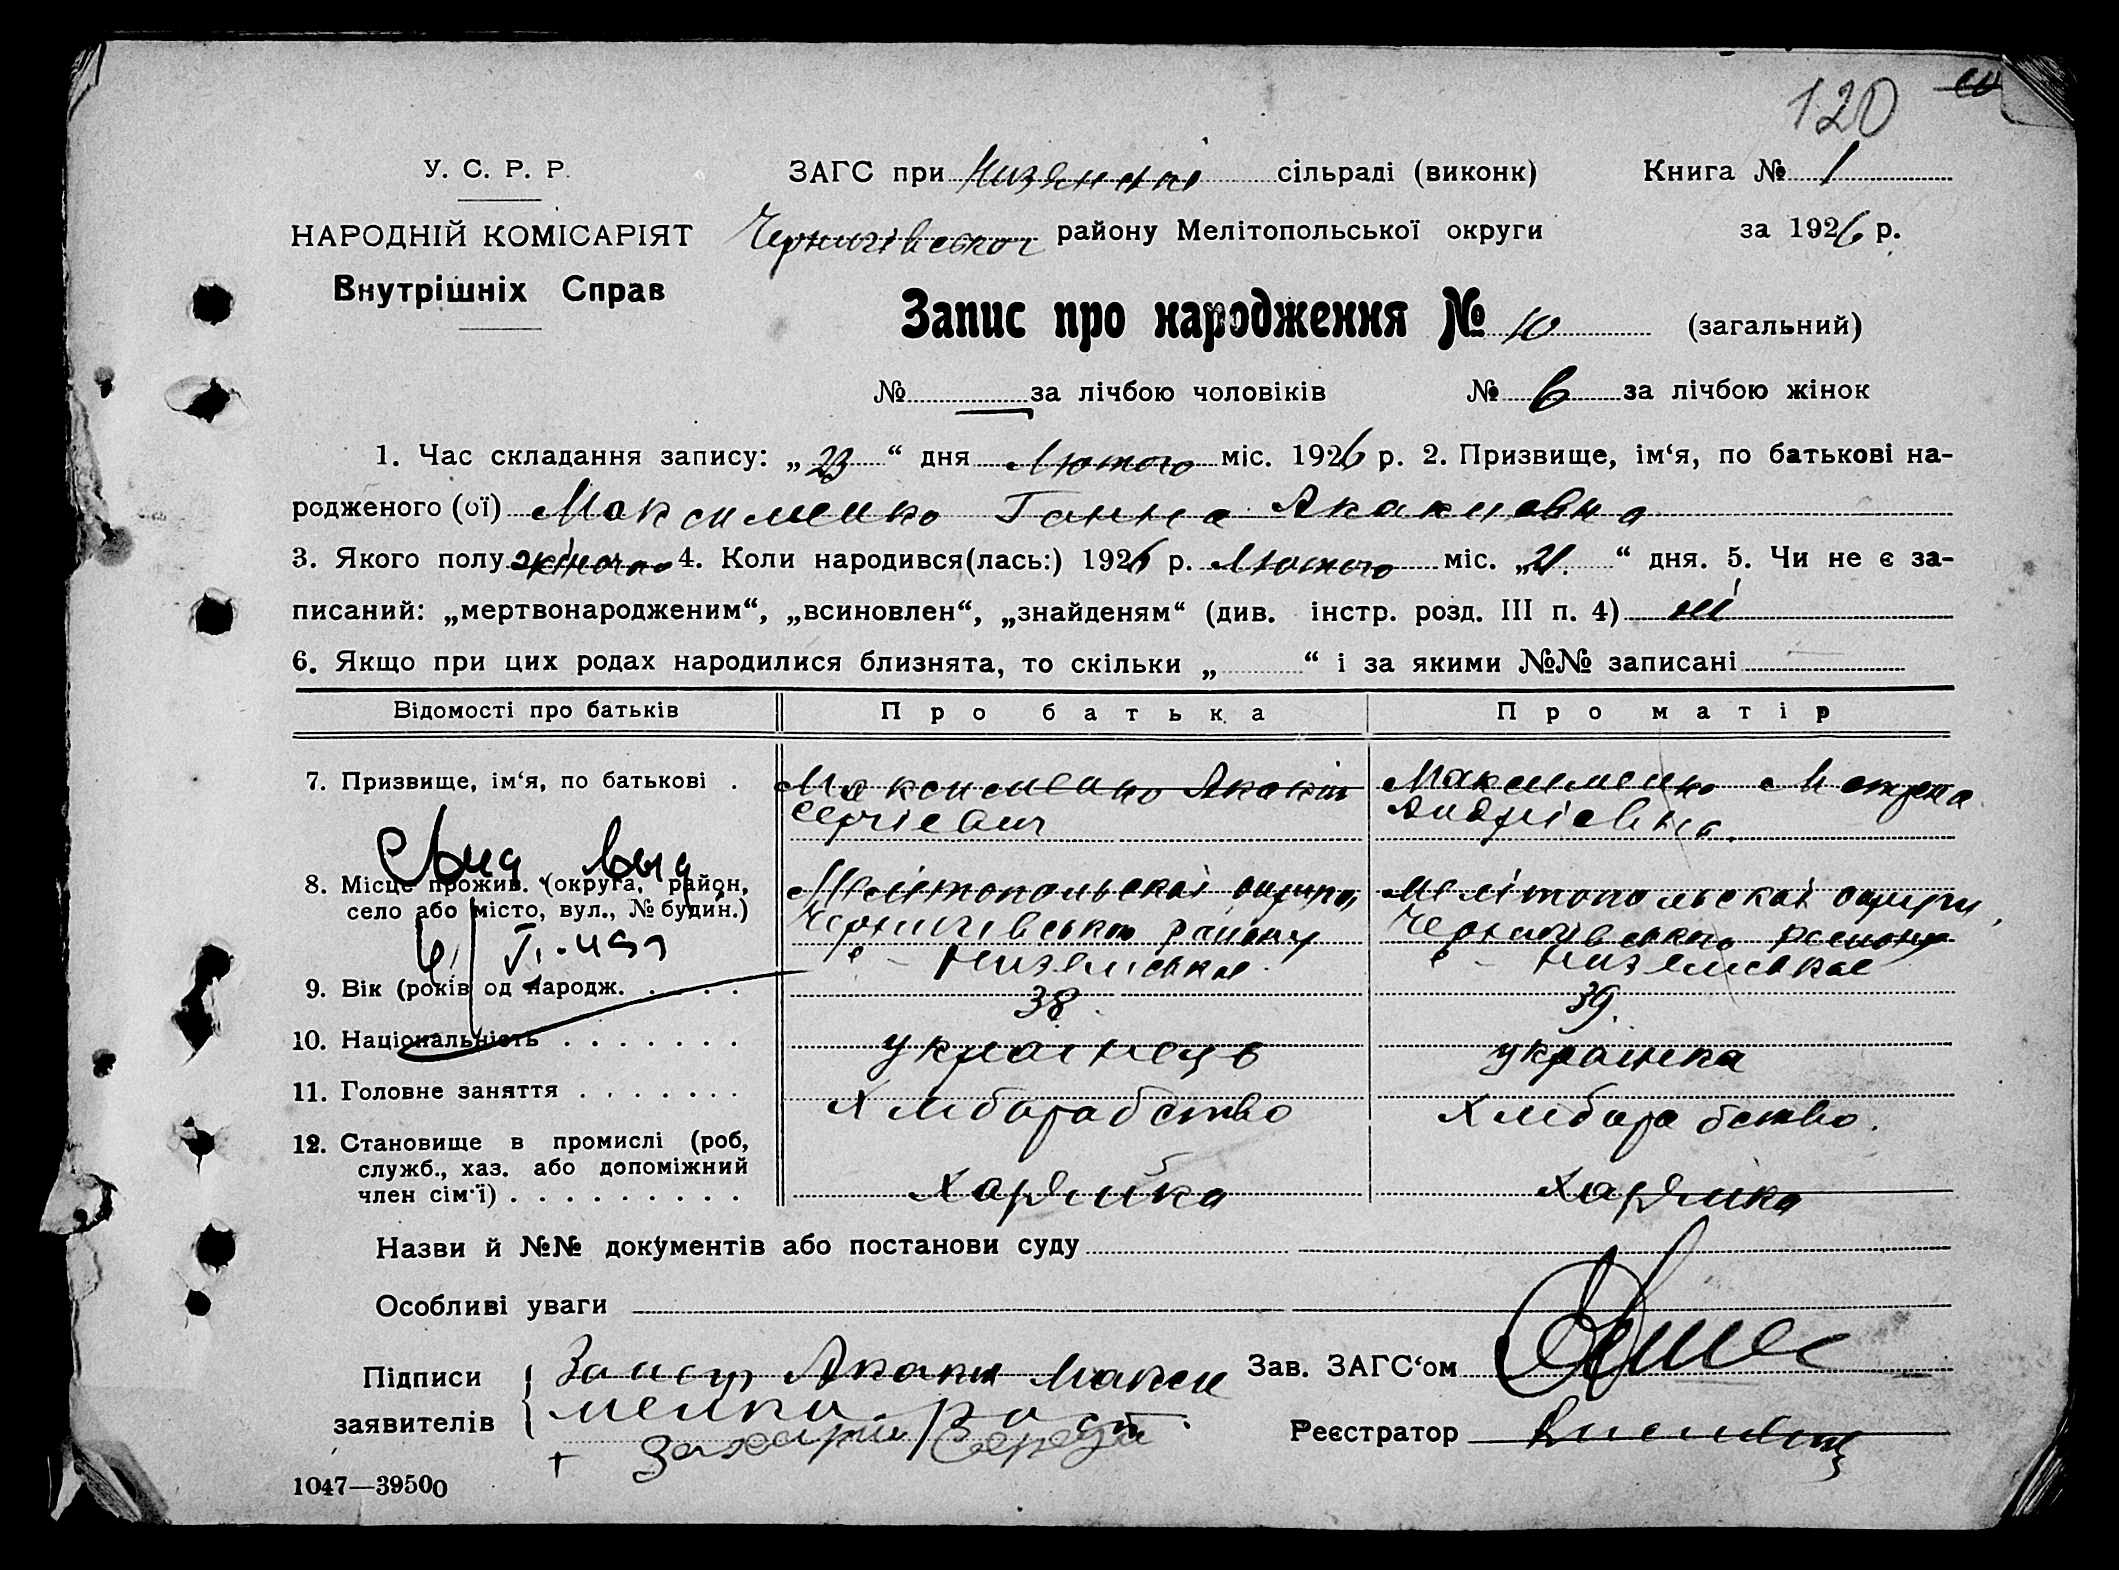 120
У. С. Р. Р. ЗАГС при Низянскі сільраді (виконк) Книга № 1
НАРОДНІЙ КОМІСАРІЯТ Чернигівского району Мелітопольської округи за 1926 р.
Внутрішніх Справ
Запис про народження № 10 (загальний)
№ — за лічбою чоловіків № 6 за лічбою жінок
1. Час складання запису: „23“ дня Лютого міс. 1926 р. 2. Призвище, ім‘я, по батькові на-
родженого (ої) Максименко Ганна Акакиевна
3. Якого полу жіночо 4. Коли народився(лась:) 1926 р. Лютого міс. „21.“ дня. 5. Чи не є за-
писаний: „мертвонародженим“, „всиновлен“, „знайденям“ (див. інстр. розд. III п. 4) ні
6. Якщо при цих родах народилися близнята, то скільки „ “ і за якими №№ записані
Відомості про батьків Про батька Про матір
7. Призвище, ім‘я, по батькові . Максименко Акакій Максименко Мотрона
Сергієвич Андрієвна.
8. Місце прожив. (округа, район, Мелітопольскої округи, Мелітопольскої округи,
село або місто, вул., № будин.) Чернигівського району Чернигівського району
Низянське Низянське
9. Вік (років од народж. . . . . 38. 39.
10. Національність . . . . . . . українець українка
11. Головне заняття . . . . . . . Хлиборабство Хлиборабство.
12. Становище в промислі (роб,
служб., хаз. або допоміжний
член сім‘ї) . . . . . . . . . Хазяйка Хазяйка
Назви й №№ документів або постанови суду
Особливі уваги
Підписи Акаки Макси Зав. ЗАГС‘ом
заявителів менки Реєстратор
+ Захарій Середа
1047—39500